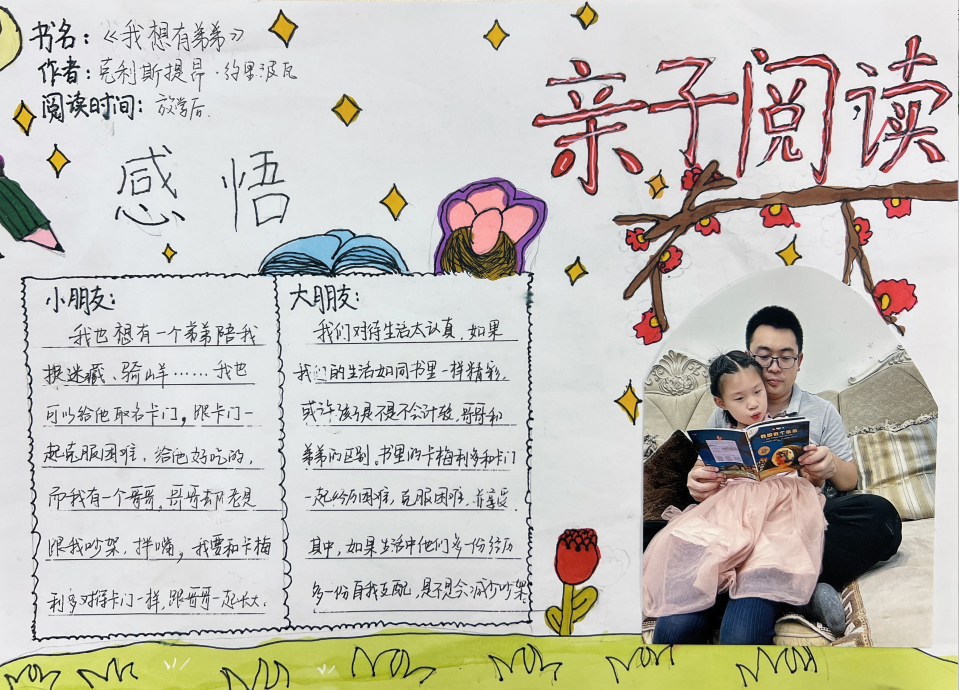 书名：《我想有弟弟》
作者：克利斯提昂·约里波瓦
阅读时间：放学后.
亲子阅读
感悟
小朋友：
我也想有一个弟弟陪我
捉迷藏、骑山羊……我也
可以给他取名卡门，跟卡门一
起克服困难，给他好吃的，
而我有一个哥哥，哥哥却老是
跟我吵架，拌嘴，我要和卡梅
利多对待卡门一样，跟哥哥一起长大.
大朋友：
我们对待生活太认真，如果
我们的生活如同书里一样精彩，
或许孩子是不是不会计较，哥哥和
弟弟的区别。书里的卡梅利多和卡门
一起经历困难，克服困难，并享受
其中，如果生活中他们多一份经历
多一份自我支配，是不是会减少吵架
我想有个弟弟